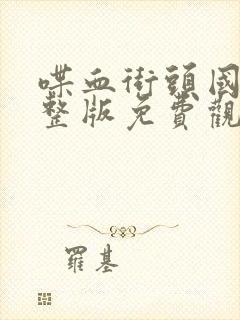 喋血街頭國
整版免費觀
羅基